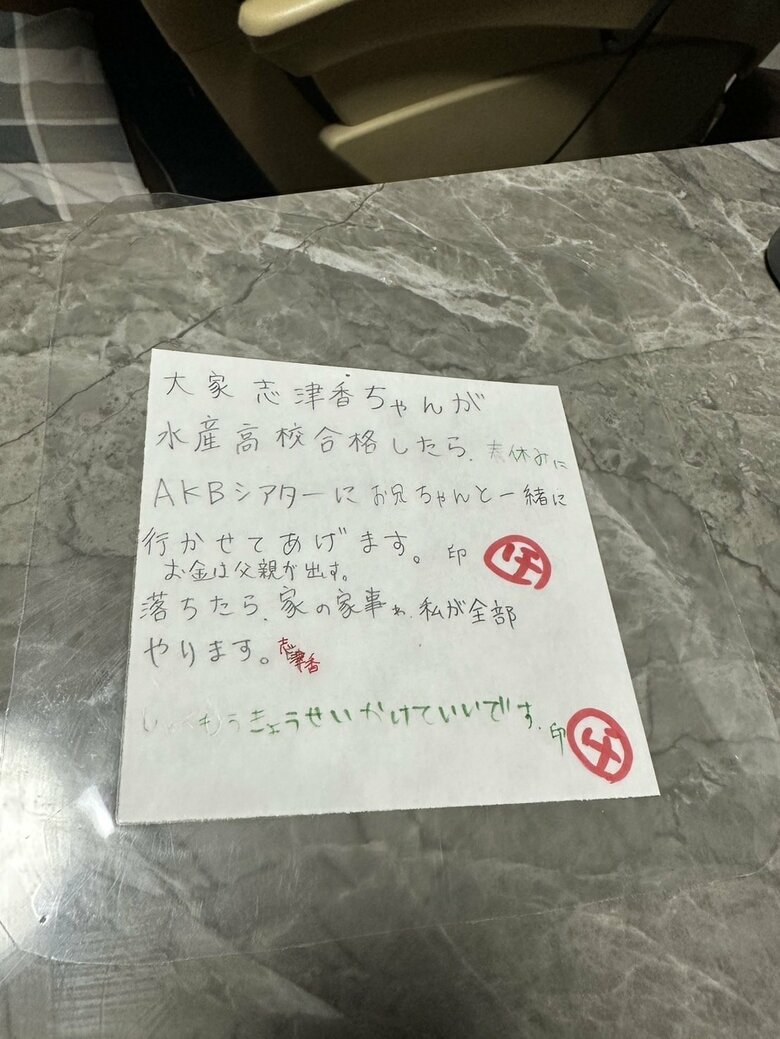 大家 志津香ちゃんが
水産高校合格したら、春休みに
AKBシアターにお兄ちゃんと一緒に
行かせてあげます。 印 父
お金は父親が出す。
落ちたら、家の家事わ、私が全部
やります。志津香
しゅくもうきょうせいかけていいです。印 父